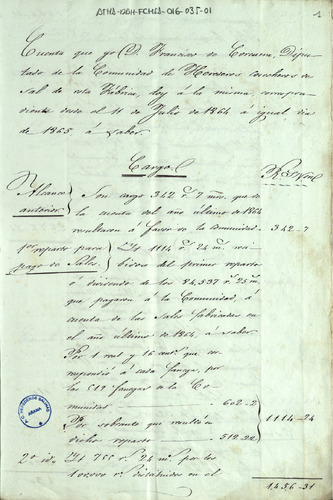 ATHA-DAH-FCHSA-016-035-01
1
Cuenta que yo D. Francisco de Corcuera, Dipu-
tado de la Comunidad de Herederos cosecheros de
Sal de esta fábrica, doy á la misma correspon-
diente desde el 11 de Julio de 1864 á igual dia
de 1865, á saber.
Cargo
Rs. Vn.
Alcance
anterior
Son cargo 342 r. 7 mrs. que de
la cuenta del año último de 1864
resultaron á favor de la Comunidad.
342-7
1er reparto para
pago de Sales
Yt. 1114 r. 24 m. reci-
bidos del primer reparto
ó dividendo de los 84,537 r. 25 m.
que pagaron á la Comunidad, á
cuenta de las Sales fabricadas en
el año último de 1864, á saber
Por 1 real y 16 cent. que cor-
respondió á cada fanega, por
las 519 fanegas de la Co-
munidad
602-2
Por sobrante que resultó en
dicho reparto
512-22
1114-24
2º id.
Yt. 755 r. 24 m. por los
100,000 r. distribuidos en el
1,456-31